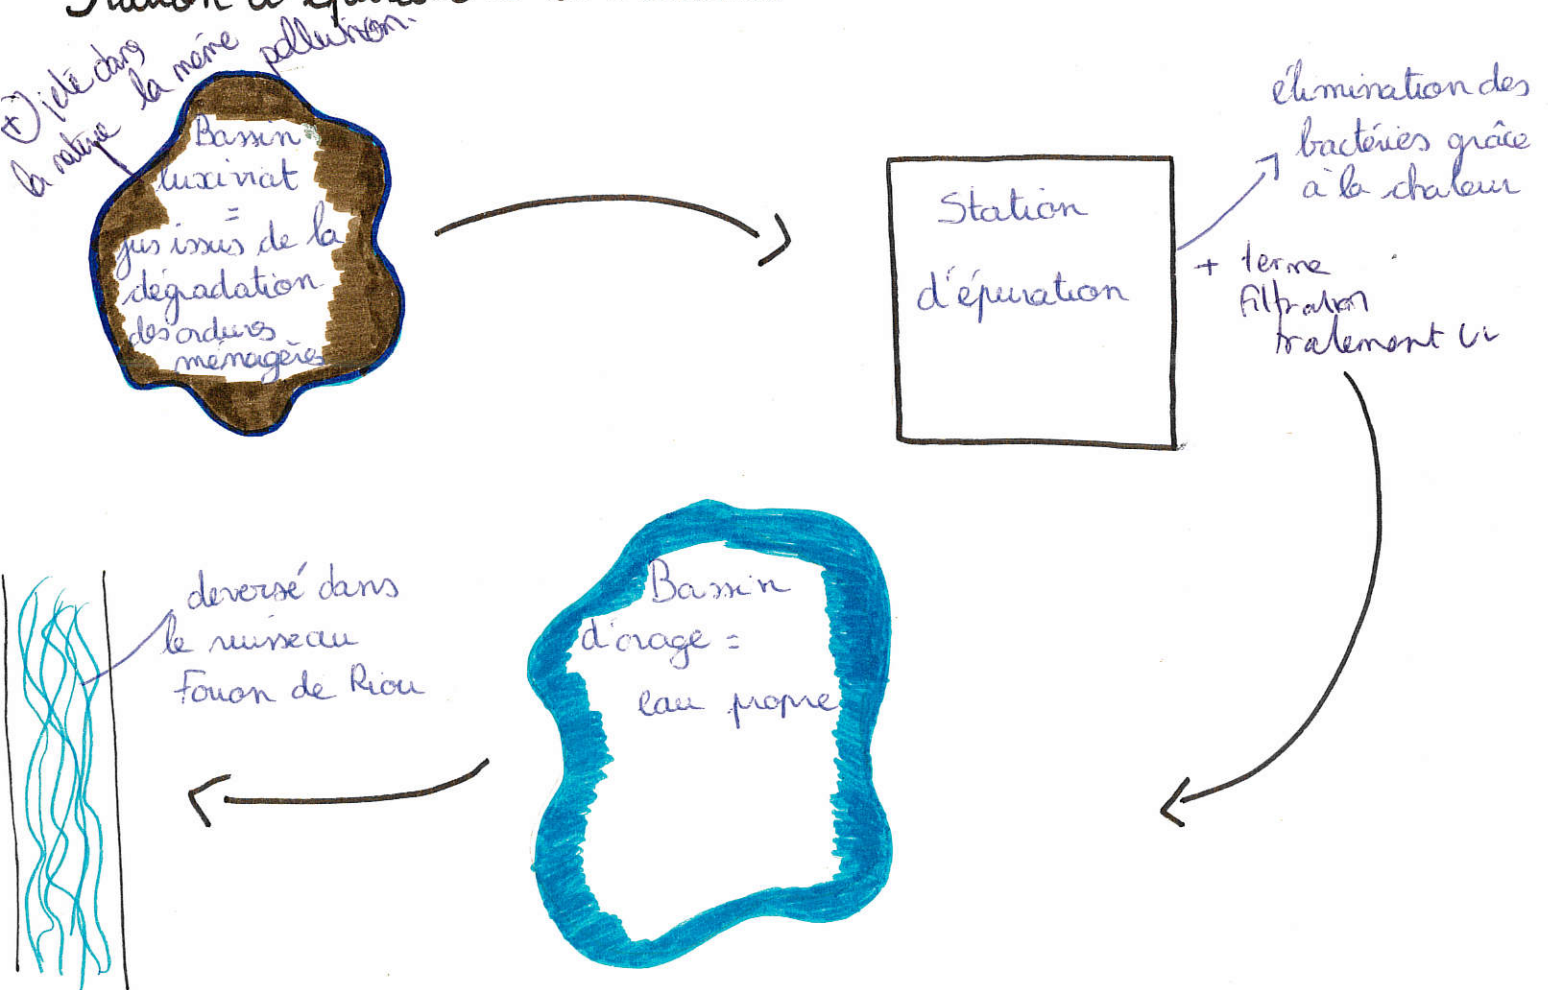 + jeté dans
la nature la même pollution.
Bassin
luxiviat
=
jus issus de la
dégradation
des ordures
ménagères
Station
d'épuration
élimination des
bactéries grâce
à la chaleur
+ terme
filtration
traitement
Bassin
d'orage =
eau propre
deversé dans
le ruisseau
Fouon de Riou